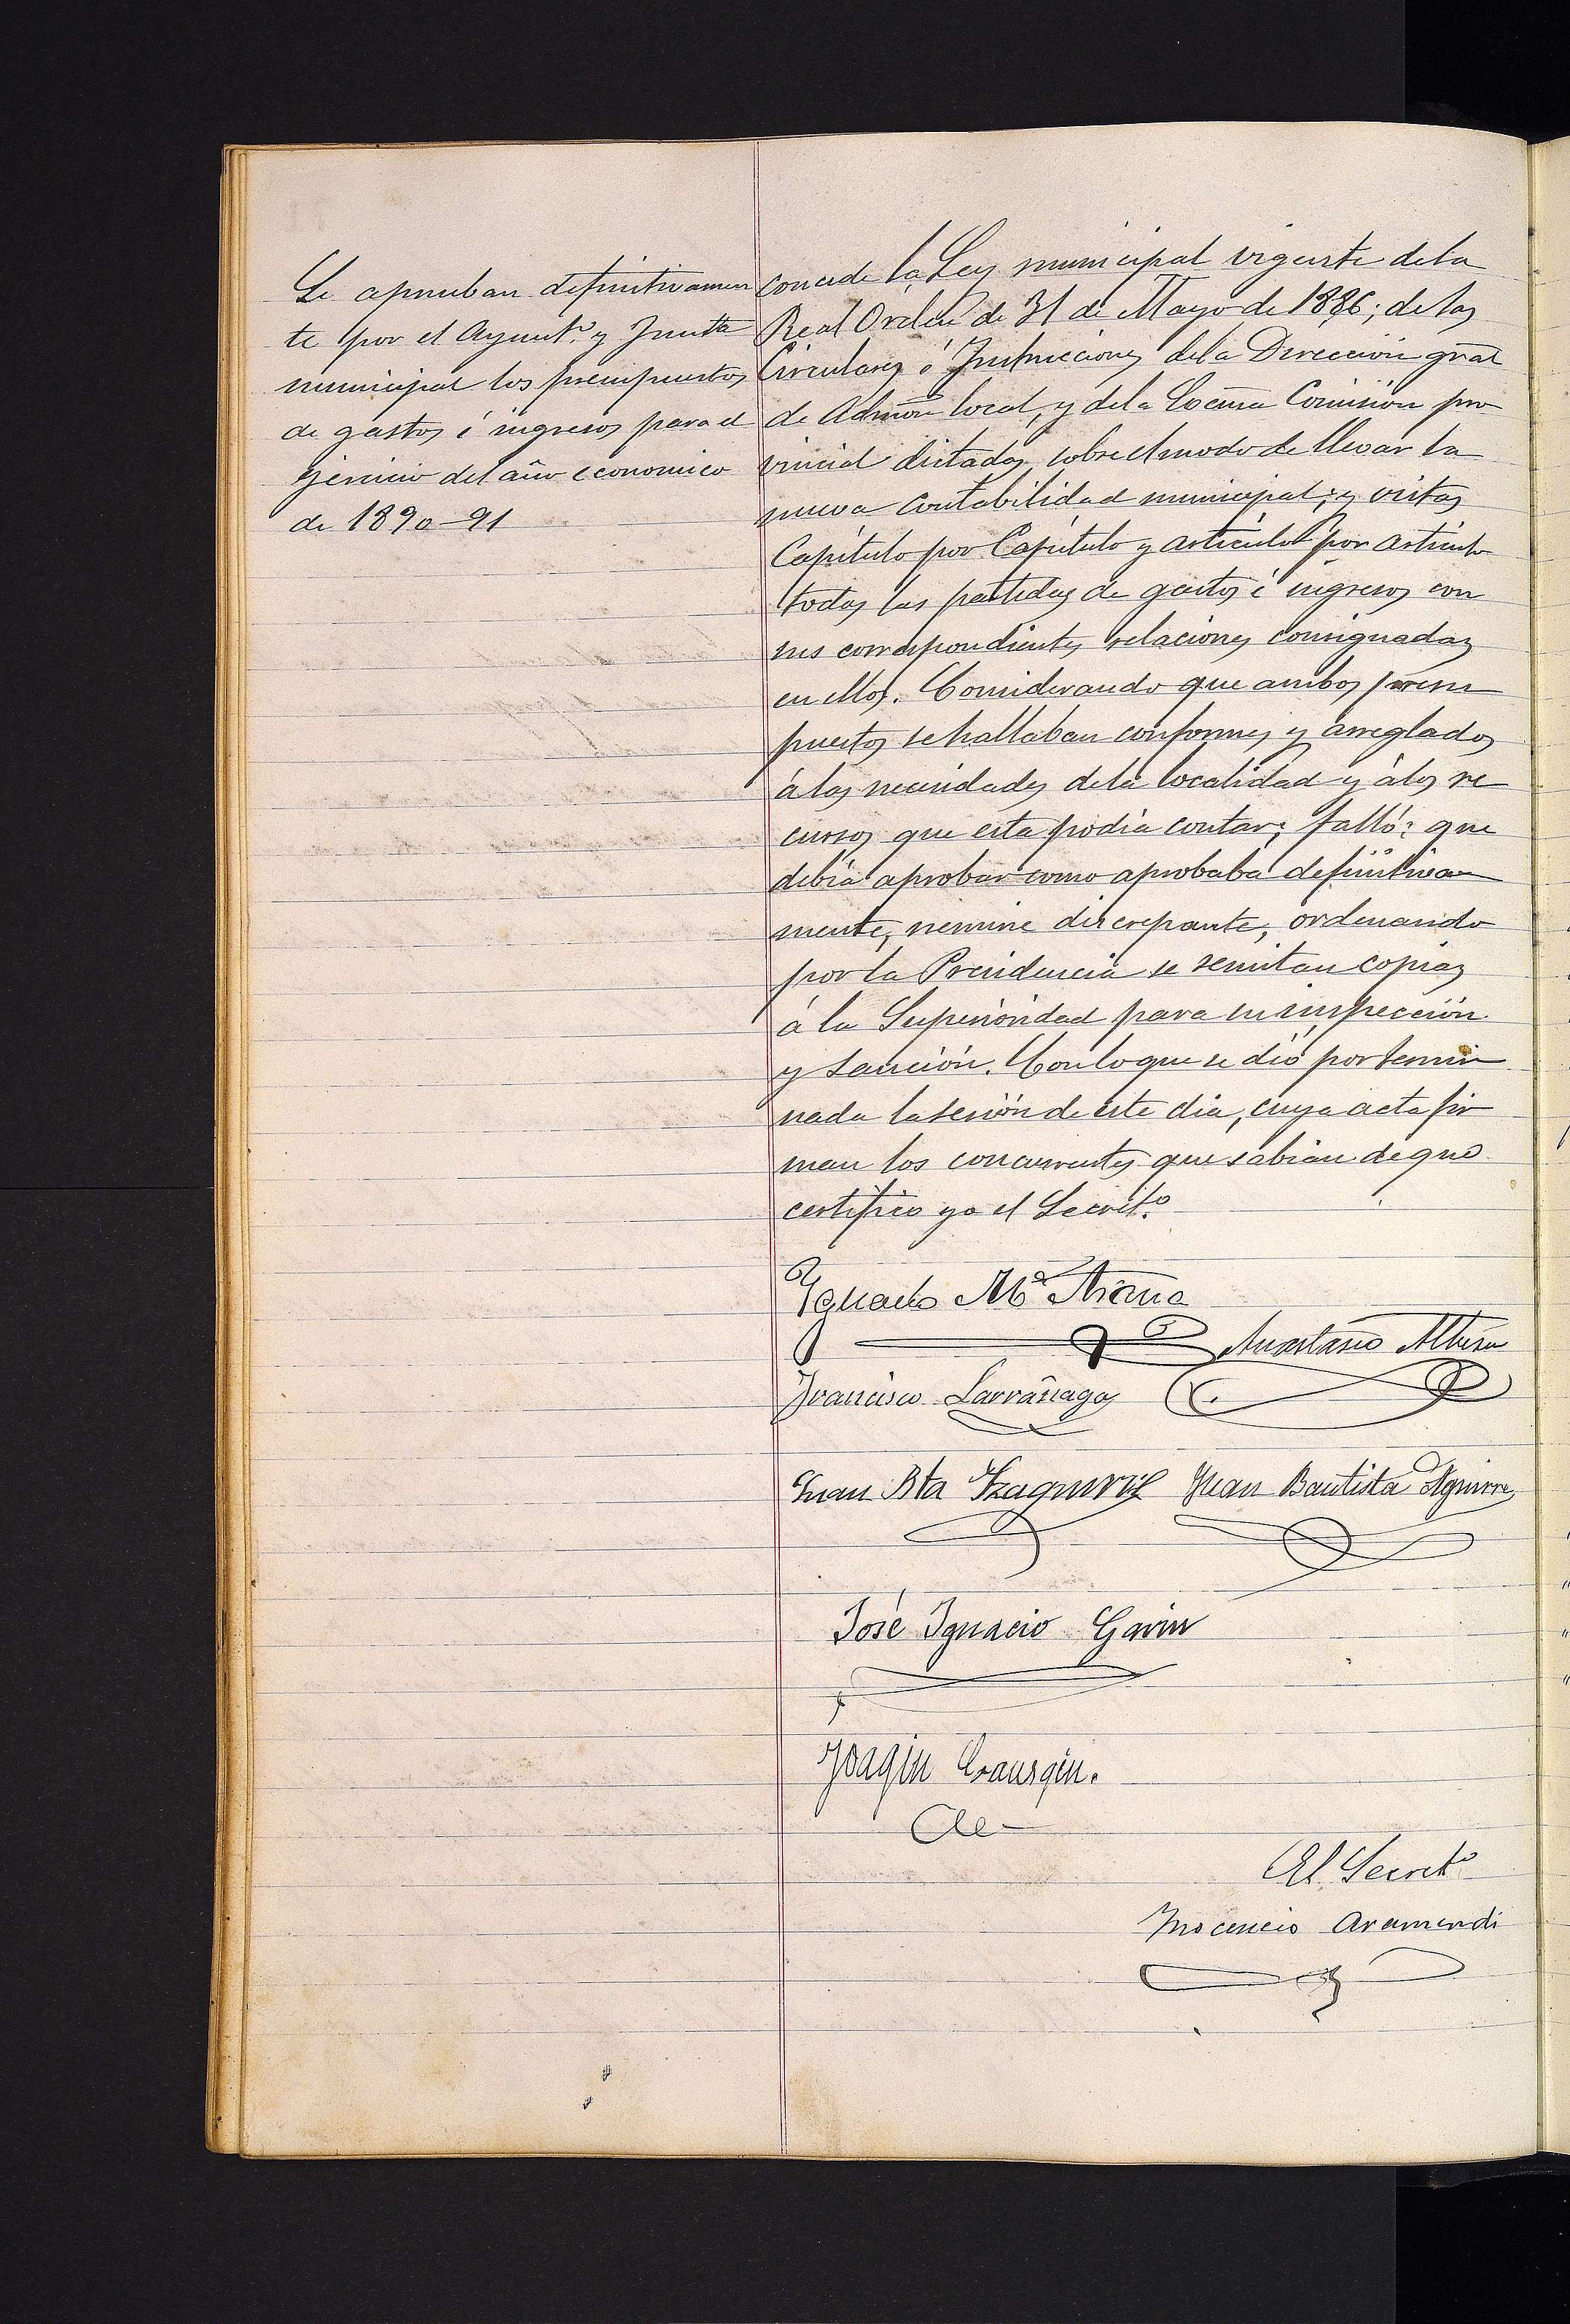 Se aprueban definitivamen
te por el Ayunt.º y Junta
municipal los presupuestos
de gastos é ingresos para el
ejercicio del año economico
de 1890-91
concede la Ley municipal vigente de la
Real Orden de 31 de Mayo de 1886; de las
Circulares é Instrucciones de la Dirección gral
de Admon local, y de la Excma Comisión pro
vincial dictadas sobre el modo de llevar la
nueva contabilidad municipal; y vistas
Capítulo por Capítulo y artículo por artículo
todas las partidas de gastos é ingresos con
sus correspondientes relaciones consignadas
en ellos. Considerando que ambos presu
puestos se hallaban conformes y arreglados
á las necesidades de la localidad y á los re
cursos que esta podía contar; falló: que
debía aprobar como aprobaba definitiva
mente, nemine discrepante, ordenando
por la Presidencia se remitan copias
á la Superioridad para su inspección
y sanción. Con lo que se dió por termi
nada la sesión de este dia, cuya acta fir
man los concurrentes que sabian de que
certifico yo el Secret.º
Ygnacio Mª Arana
Anastasio Alberdi
Francisco Larrañaga
Juan Bta Yzaguirre Juan Bautista Aguirre
José Ignacio Gavin
Joaqin
El Secretº
Inocencio Aramendi